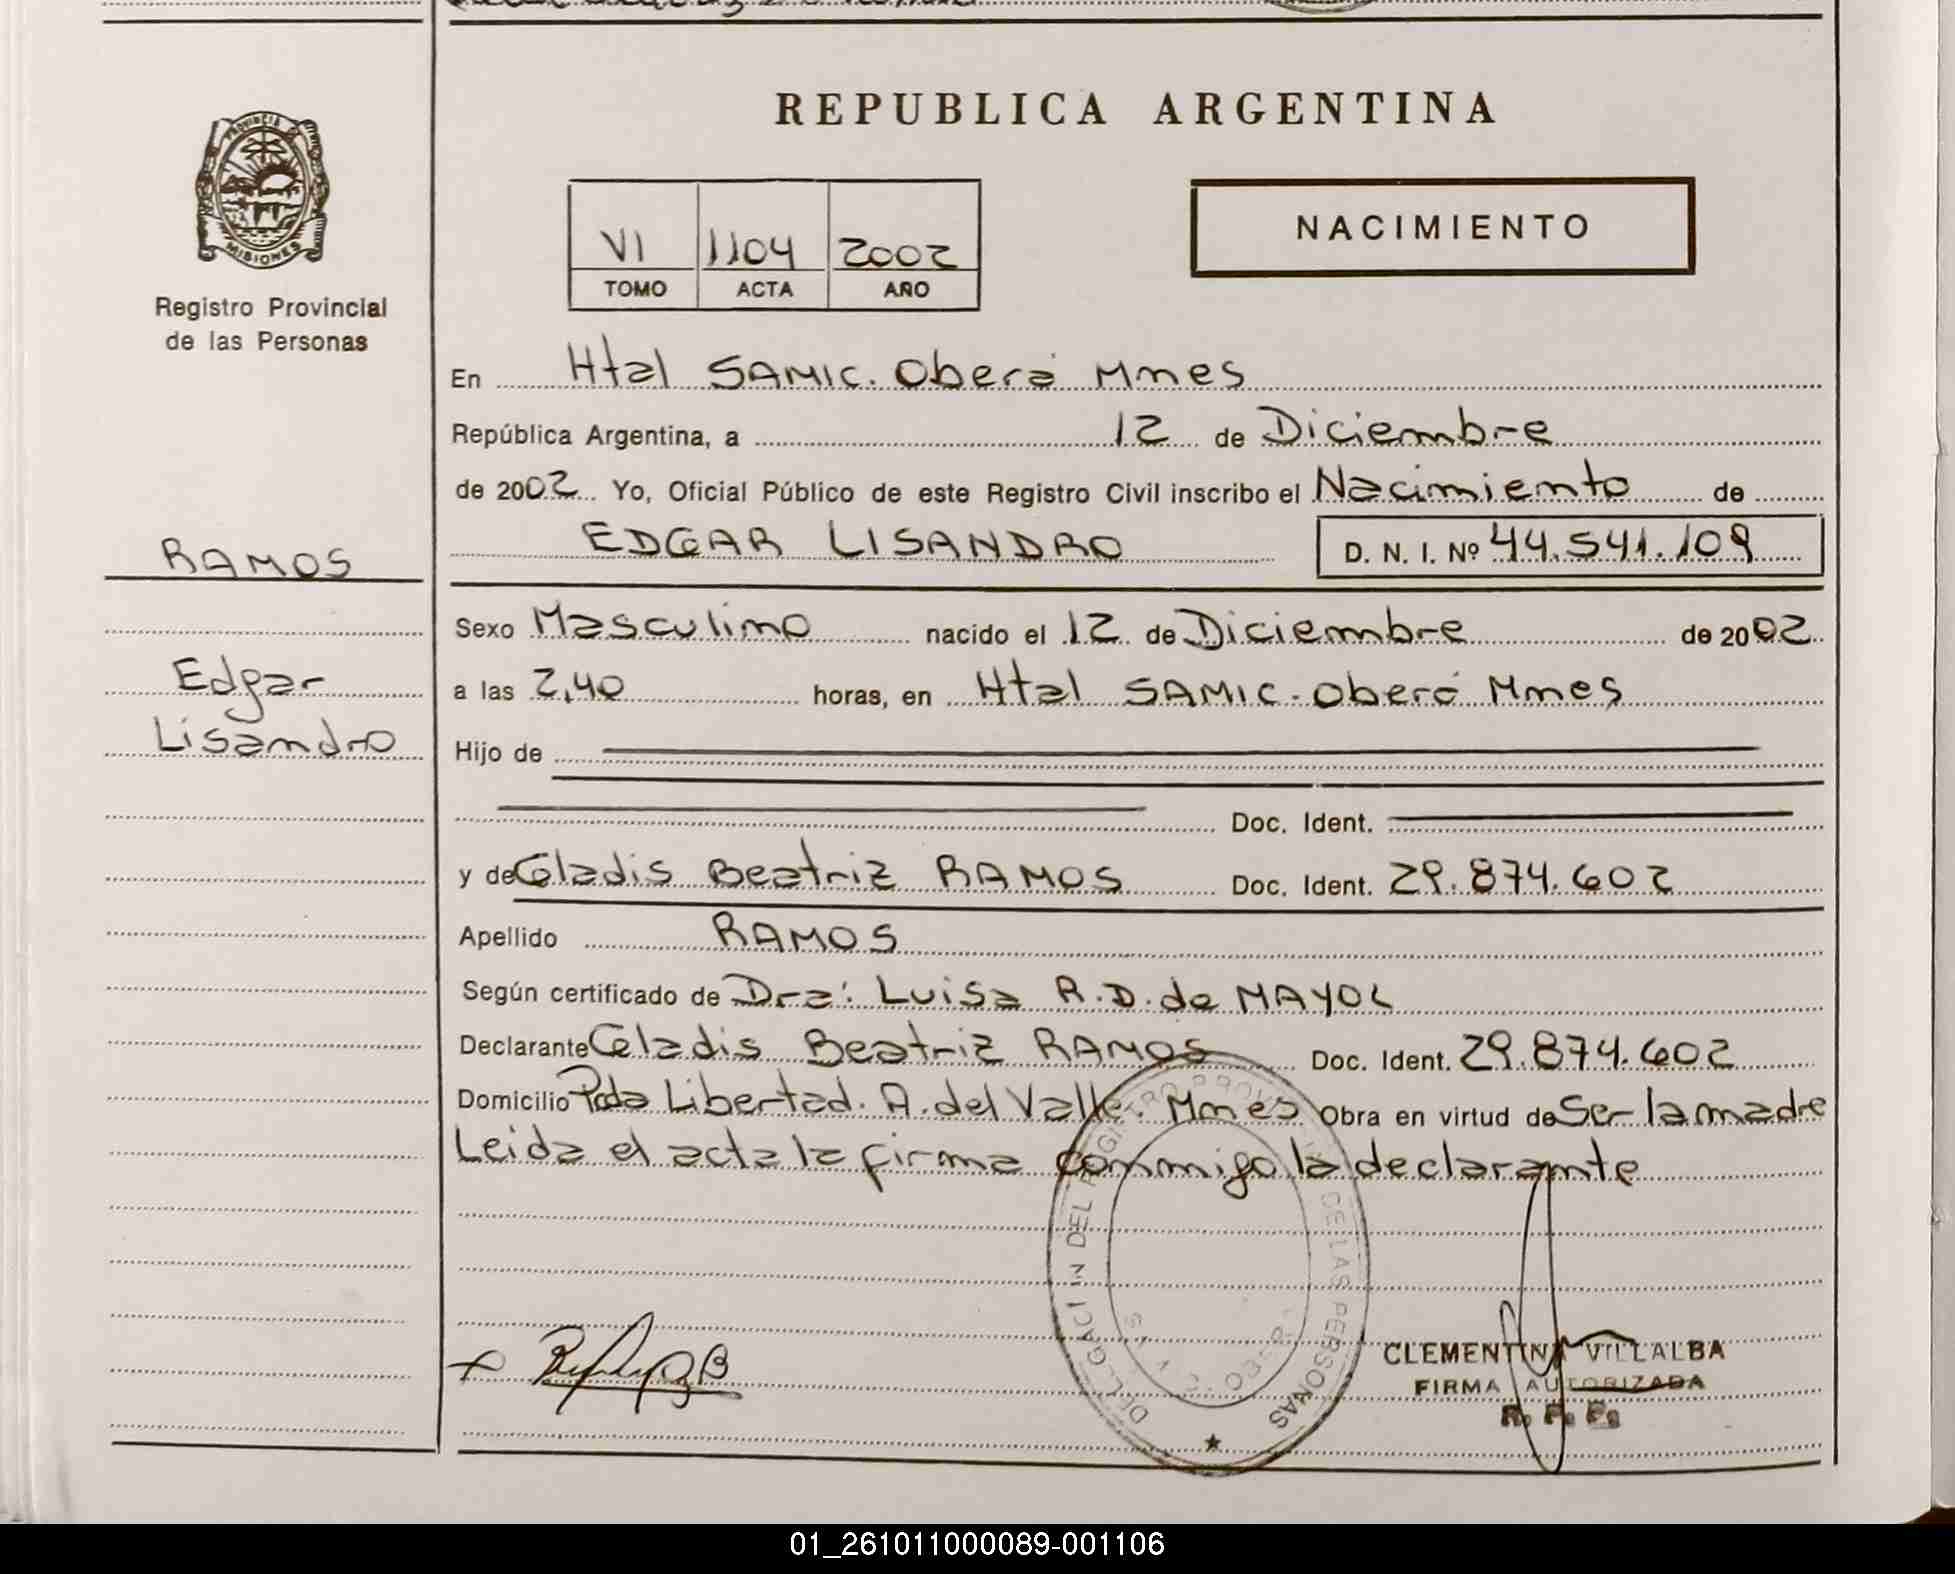 REPUBLICA ARGENTINA
PROVINCIA DE
MISIONES
Registro Provincial
de las Personas
VI 1104 2002
TOMO ACTA AÑO
NACIMIENTO
En Htal SAMIC. Oberá Mnes
República Argentina, a 12 de Diciembre
de 2002 Yo, Oficial Público de este Registro Civil inscribo el Nacimiento de
EDGAR LISANDRO D. N. I. Nº 44.541.109
RAMOS
Edgar
Lisandro
Sexo Masculino nacido el 12 de Diciembre de 2002
a las 2,40 horas, en Htal SAMIC. Oberá Mnes
Hijo de
Doc. Ident.
y de Gladis Beatriz RAMOS Doc. Ident. 29.874.602
Apellido RAMOS
Según certificado de Dra: Luisa R.D. de MAYOL
Declarante Gladis Beatriz RAMOS Doc. Ident. 29.874.602
Domicilio Pcda Libertad. A. del Valle. Mnes Obra en virtud de Ser la madre
Leida el acta la firma conmigo la declarante
DE LAS PERSONAS
CLEMENTINA VILLALBA
FIRMA AUTORIZADA
R. P. P.
01_261011000089-001106